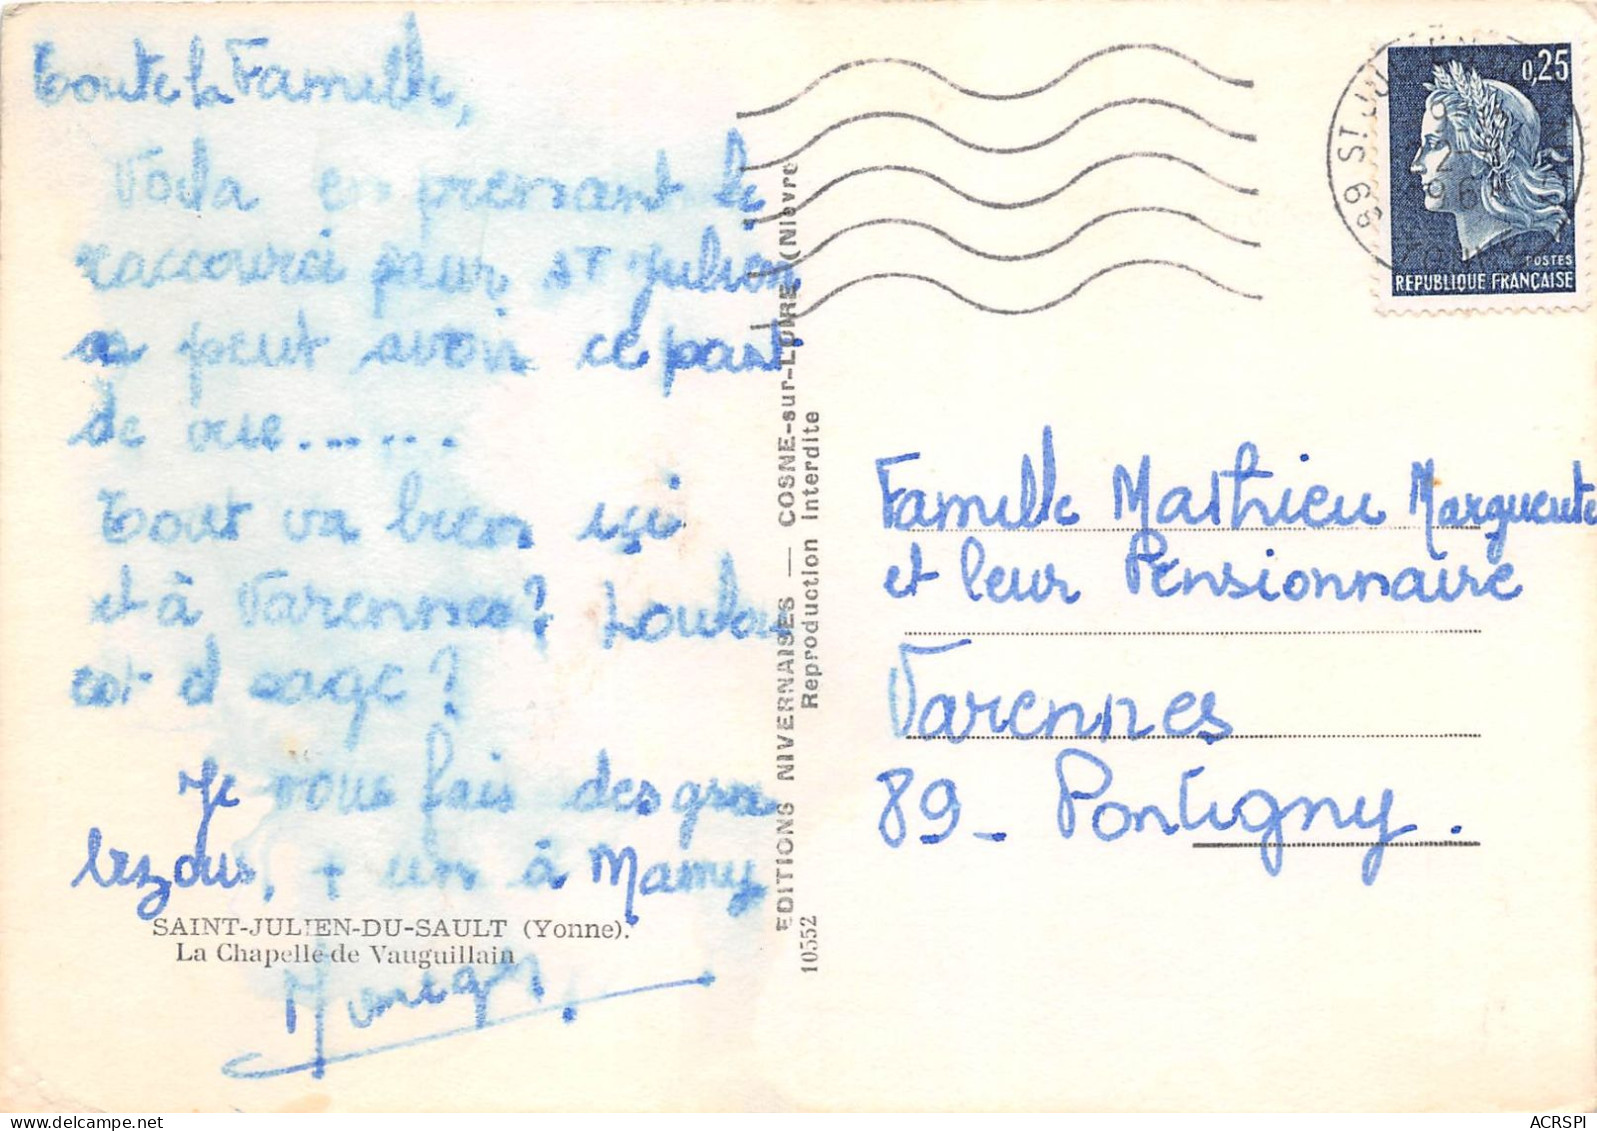 Toute la Famille,
Voila en prenant le
raccourci pour St Julien
on peut avoir ce point
de vue.......
Tout va bien içi
et à Varennes? Loulou
est il sage?
Je vous fais des gros
bizous, + un à Mamy
SAINT-JULIEN-DU-SAULT (Yonne).
La Chapelle de Vauguillain
EDITIONS NIVERNAISES — COSNE-sur-LOIRE (Nièvre
Reproduction Interdite
10552
89 ST JU
0,25
POSTES
REPUBLIQUE FRANÇAISE
Famille Mathieu Marguerite
et leur Pensionnaire
Varennes
89 - Pontigny.
ACRSPI